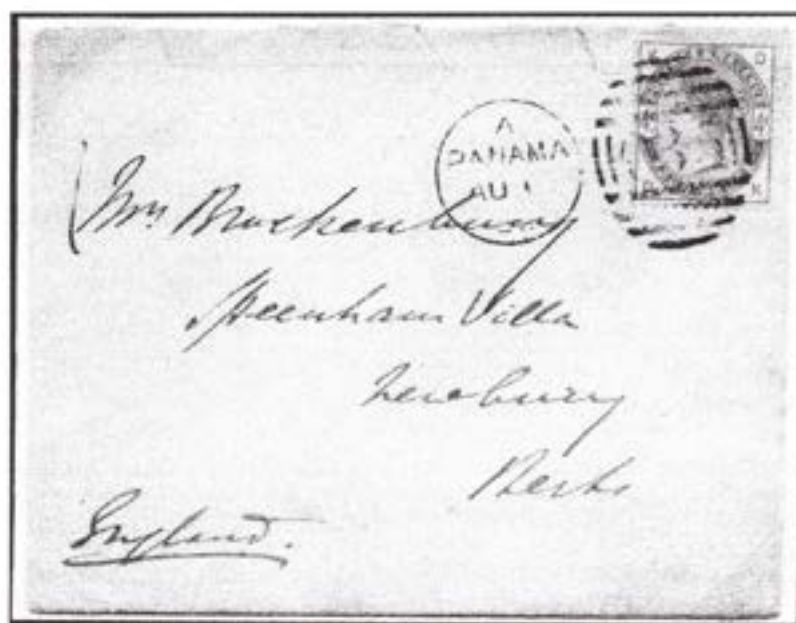 A
PANAMA
AU 1
Mrs Brackenbury
Speenham Villa
Newbury
Berks
England.